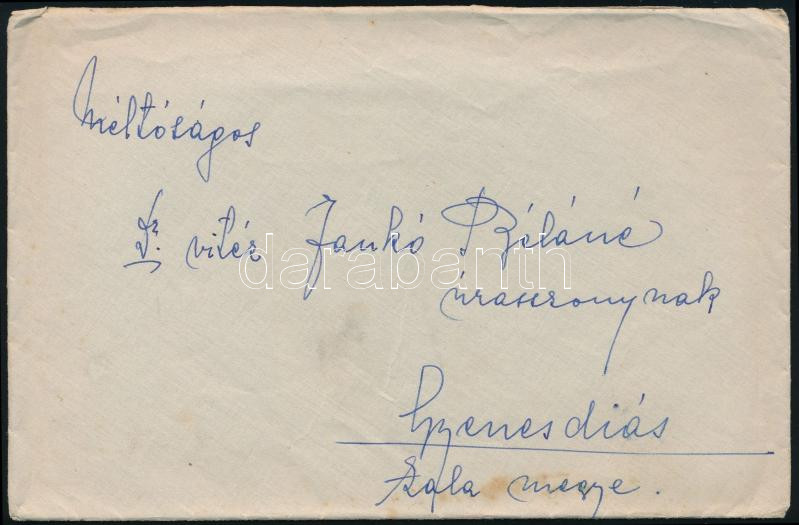 Méltóságos
Dr. vitéz Jankó Béláné
darabanth
úraszonynak
Gyenesdiás
Zala megye.